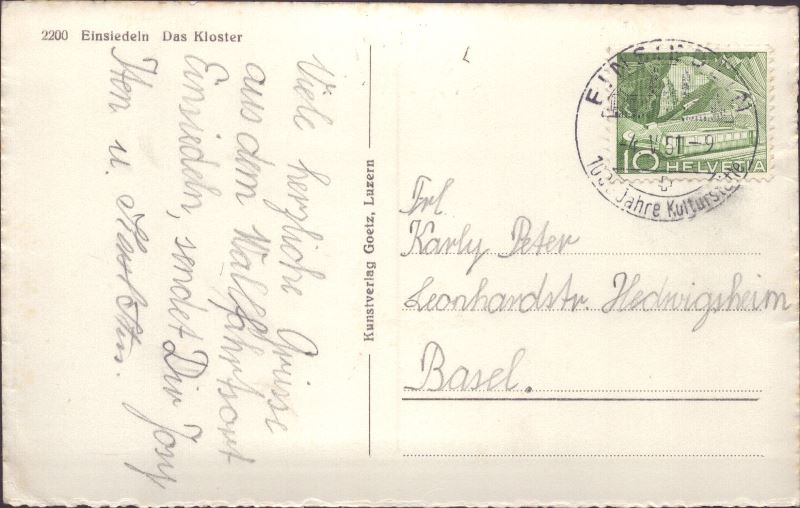 2200 Einsiedeln Das Kloster
Viele herzliche Grüsse
aus dem Wallfahrtsort
Einsiedeln, sendet Dir
Kunstverlag Goetz, Luzern
EINSIEDELN
-4.V.51-9
Jahre Kulturstätte
10 HELVETIA
Frl
Karly Peter
Leonhardstr. Hedwigsheim
Basel.